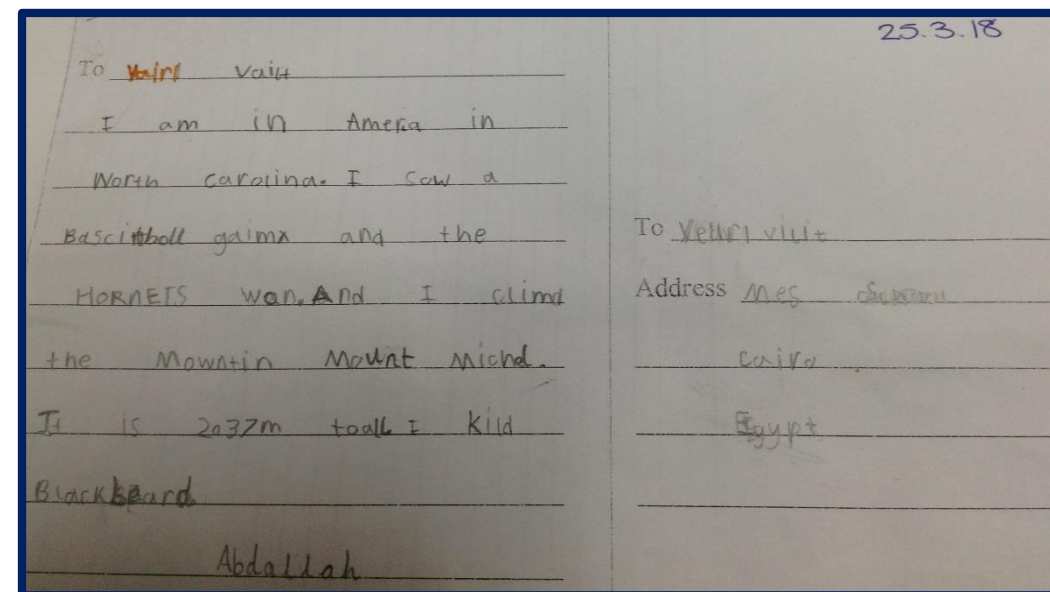 25.3.18
To Vairi Vait
I am in Ameria in
North carolina. I Saw a
Bascitboll gaimx and the
HORNETS wan. And I climd
the Mowntin Mount Michel.
It is 2037m toall I Kild
Blackbeard
Abdallah
To
Address Mes
Cairo
Egypt